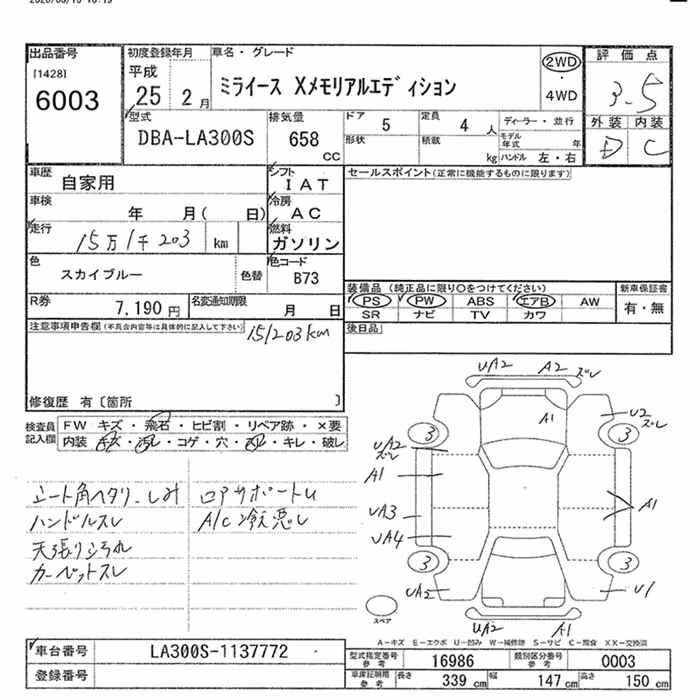 出品番号 初度登録年月 車名・グレード 評価点
[1428] 平成 2WD
6003 25 2月 ミライース Xメモリアルエディション ・ 3.5
4WD
型式 排気量 ドア 5 定員 4人 ディーラー・並行 外装 内装
DBA-LA300S 658 CC 形状 積載 kg モデル年式 年 D C
ハンドル 左・右
車歴 自家用 シフト IAT セールスポイント(正常に機能するものに限ります)
車検 年 月( 日) 冷房 AC
走行 15万1千203 km 燃料 ガソリン
色 スカイブルー 色替 色コード B73
装備品 (純正品に限り○をつけてください) 新車保証書
R券 7,190円 名変通知期限 月 日 PS PW ABS エアB AW 有・無
SR ナビ TV カワ
注意事項申告欄(不具合内容等は具体的に記入して下さい) 151203km 後日品
修復歴 有〔箇所 〕
検査員 FW キズ・飛石・ヒビ割・リペア跡・×要
記入欄 内装 キズ・汚レ・コゲ・穴・凹・キレ・破レ
シート角ヘタリ、しみ ロアサポートU
ハンドルスレ A/C冷え悪し
天張りよごれ
カーペットスレ
UA2 A2 ズレ
A1 U2 ズレ
3 3
UA2 ズレ
A1
UA3 A1
UA4
3 3
UA2 U1
UA2 A1
スペア
A-キズ E-エクボ U-凹み W-補修跡 S-サビ C-腐食 XX-交換済
車台番号 LA300S-1137772 型式指定番号 参考 16986 類別区分番号 参考 0003
登録番号 車庫証明用 参考 長さ 339 cm 幅 147 cm 高さ 150 cm